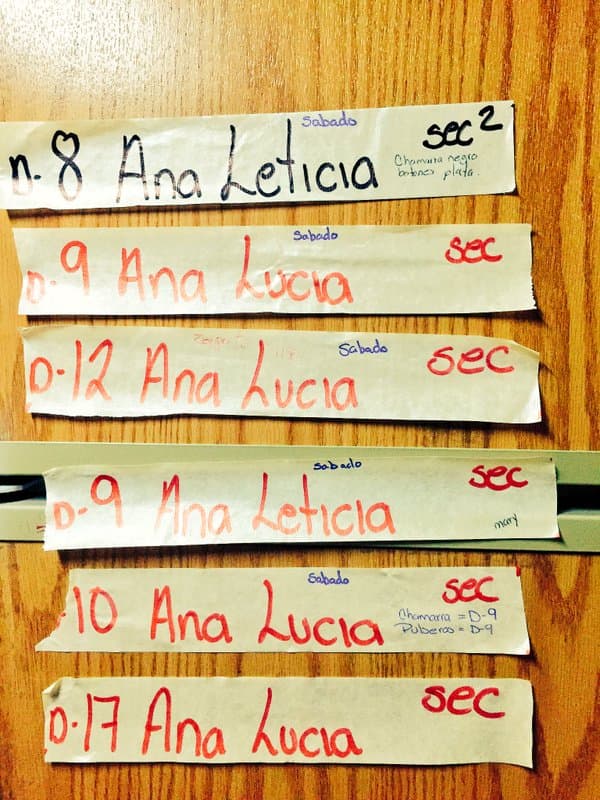 Sabado
D-8 Ana Leticia sec 2
Chamarra negro
botones plata.
Sabado
D-9 Ana Lucia sec
Sabado
D-12 Ana Lucia sec
Sabado
D-9 Ana Leticia sec
mary
Sabado
-10 Ana Lucia sec
Chamarra = D-9
Pulseras = D-9
D-17 Ana Lucia sec